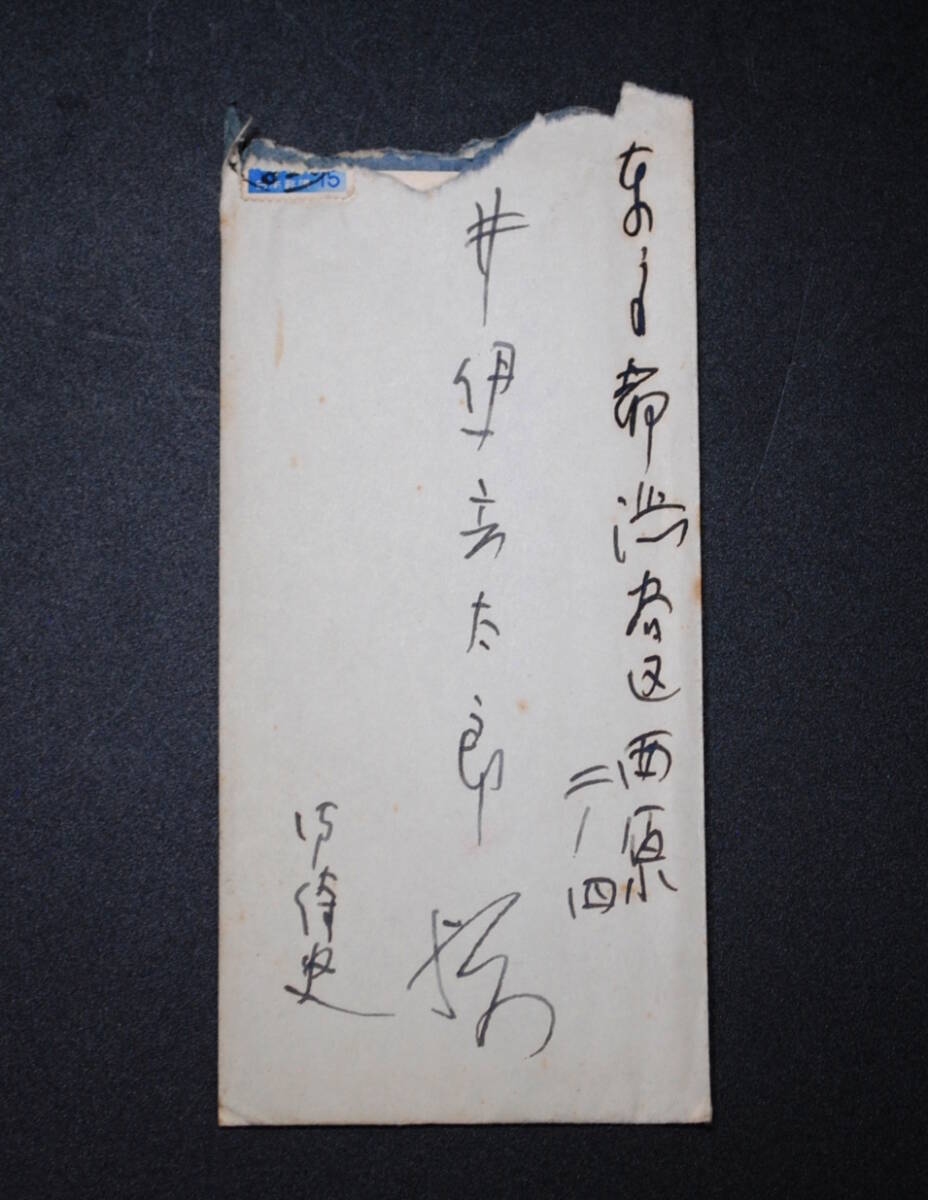 東京都渋谷区西原
二ノ四
井伊玄太郎
様
御侍史
15